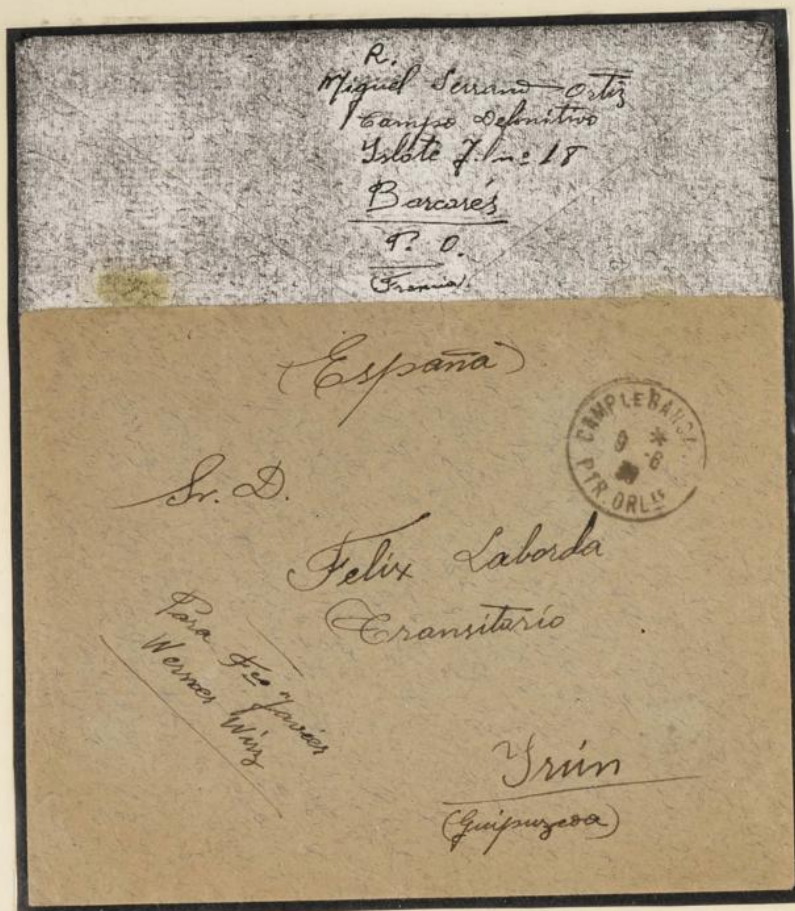 R.
Miguel Serrano Ortiz
Campo Definitivo
Islote J. nº 18
Barcarés
P. O.
(Francia)
(España)
CAMP LE BARCA
9 * 6
PYR. ORLES
Sr. D.
Felix Laborda
Transitario
Para Fco Javier
Werner Wirz
Yrún
(Guipuzcoa)